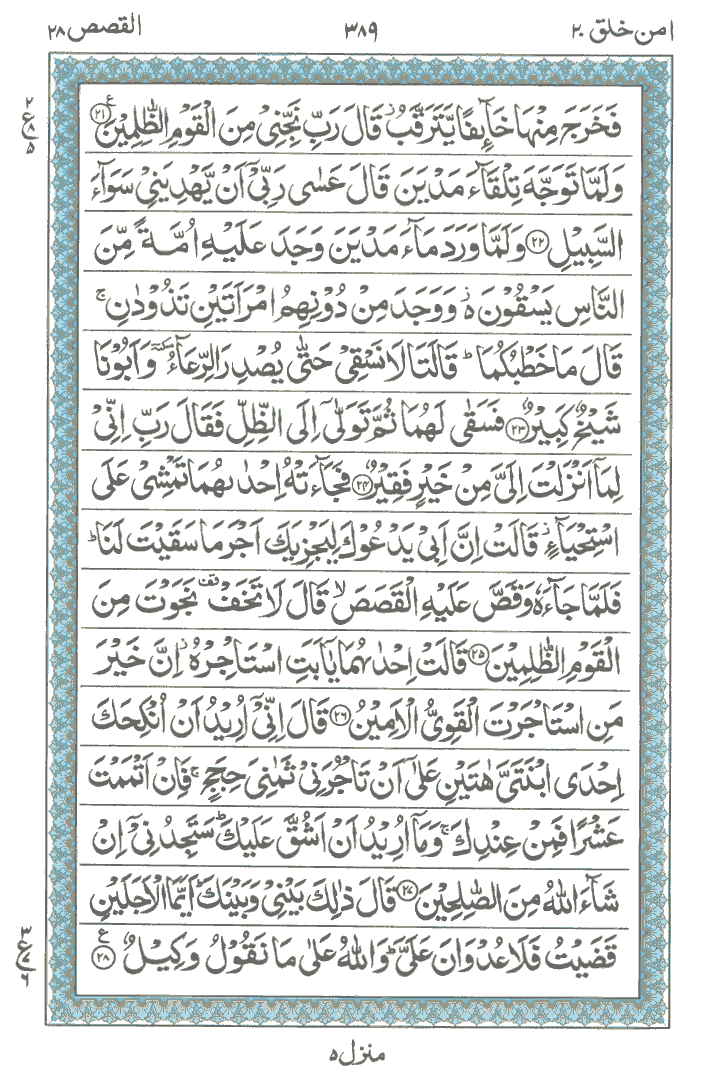 امن خلق ۲۰ ۳۸۹ القصص ۲۸
فَخَرَجَ مِنْهَا خَآئِفًا يَّتَرَقَّبُ ۫ قَالَ رَبِّ نَجِّنِيْ مِنَ الْقَوْمِ الظّٰلِمِيْنَ ﴿۲۱﴾ ع
۲ ع ۸ ۵
وَلَمَّا تَوَجَّهَ تِلْقَآءَ مَدْيَنَ قَالَ عَسٰى رَبِّيْٓ اَنْ يَّهْدِيَنِيْ سَوَآءَ
السَّبِيْلِ ﴿۲۲﴾ وَلَمَّا وَرَدَ مَآءَ مَدْيَنَ وَجَدَ عَلَيْهِ اُمَّةً مِّنَ
النَّاسِ يَسْقُوْنَ ە۬ وَوَجَدَ مِنْ دُوْنِهِمُ امْرَاَتَيْنِ تَذُوْدٰنِ ۚ
قَالَ مَا خَطْبُكُمَا ؕ قَالَتَا لَا نَسْقِيْ حَتّٰى يُصْدِرَ الرِّعَآءُ ٚ وَاَبُوْنَا
شَيْخٌ كَبِيْرٌ ﴿۲۳﴾ فَسَقٰى لَهُمَا ثُمَّ تَوَلّٰىٓ اِلَى الظِّلِّ فَقَالَ رَبِّ اِنِّيْ
لِمَآ اَنْزَلْتَ اِلَيَّ مِنْ خَيْرٍ فَقِيْرٌ ﴿۲۴﴾ فَجَآءَتْهُ اِحْدٰىهُمَا تَمْشِيْ عَلَى
اسْتِحْيَآءٍ ۫ قَالَتْ اِنَّ اَبِيْ يَدْعُوْكَ لِيَجْزِيَكَ اَجْرَ مَا سَقَيْتَ لَنَا ؕ
فَلَمَّا جَآءَهٗ وَقَصَّ عَلَيْهِ الْقَصَصَ ۙ قَالَ لَا تَخَفْ ۥ نَجَوْتَ مِنَ
الْقَوْمِ الظّٰلِمِيْنَ ﴿۲۵﴾ قَالَتْ اِحْدٰىهُمَا يٰٓاَبَتِ اسْتَاْجِرْهُ ۫ اِنَّ خَيْرَ
مَنِ اسْتَاْجَرْتَ الْقَوِيُّ الْاَمِيْنُ ﴿۲۶﴾ قَالَ اِنِّيْٓ اُرِيْدُ اَنْ اُنْكِحَكَ
اِحْدَى ابْنَتَيَّ هٰتَيْنِ عَلٰٓى اَنْ تَاْجُرَنِيْ ثَمٰنِيَ حِجَجٍ ۚ فَاِنْ اَتْمَمْتَ
عَشْرًا فَمِنْ عِنْدِكَ ۚ وَمَآ اُرِيْدُ اَنْ اَشُقَّ عَلَيْكَ ؕ سَتَجِدُنِيْٓ اِنْ
شَآءَ اللّٰهُ مِنَ الصّٰلِحِيْنَ ﴿۲۷﴾ قَالَ ذٰلِكَ بَيْنِيْ وَبَيْنَكَ ؕ اَيَّمَا الْاَجَلَيْنِ
قَضَيْتُ فَلَا عُدْوَانَ عَلَيَّ ؕ وَاللّٰهُ عَلٰى مَا نَقُوْلُ وَكِيْلٌ ﴿۲۸﴾ ع
۳ ع ۷ ۶
منزل ۵